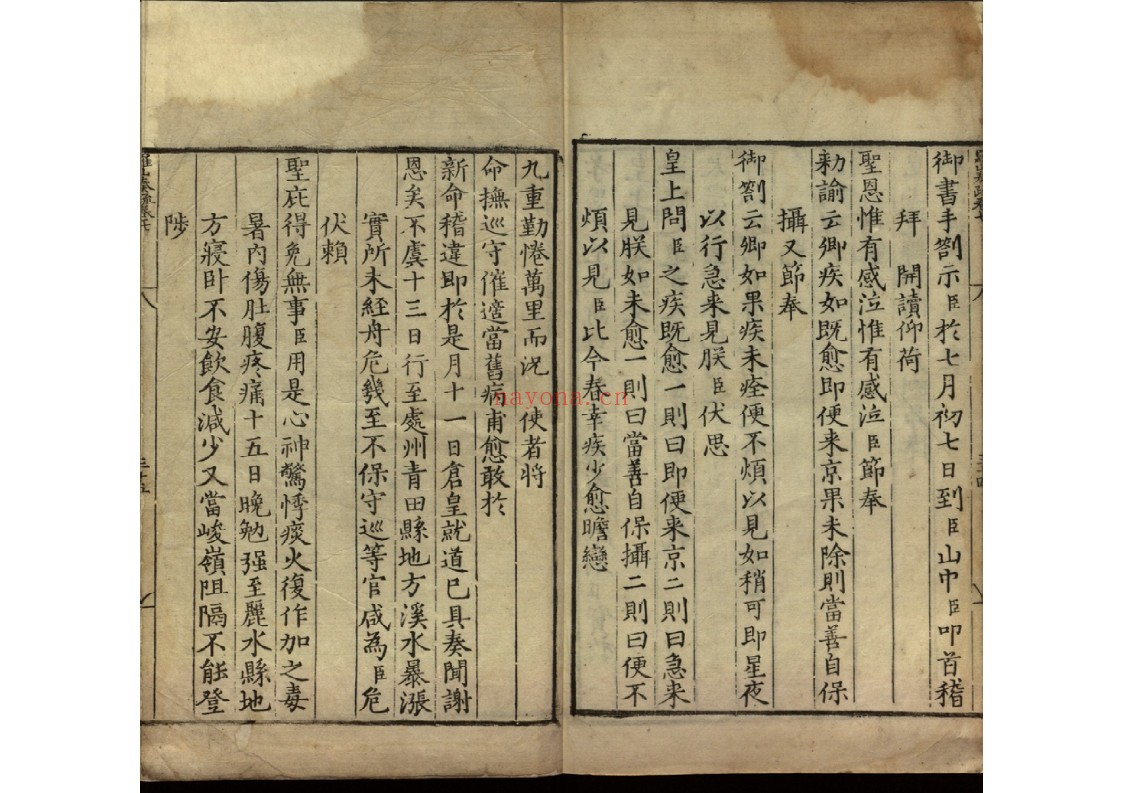 御書手劄示臣於七月初七日到臣山中臣叩首稽
拜　開讀仰荷
聖恩惟有感泣惟有感泣臣節奉
勑諭云卿疾如既愈即便来京果未除則當善自保
攝又節奉
御劄云卿如果疾未痊便不煩以見如稍可即星夜
以行急来見朕臣伏思
皇上問臣之疾既愈一則曰即便来京二則曰急来
見朕如未愈一則曰當善自保攝二則曰便不
煩以見臣比今春幸疾少愈瞻戀
九重勤惓萬里而況　使者將
命撫巡守催適當舊病甫愈敢於
新命稽違即於是月十一日倉皇就道已具奏聞謝
恩矣不虞十三日行至處州青田縣地方溪水暴漲
實所未經舟危幾至不保守巡等官咸為臣危
伏賴
聖庇得免無事臣用是心神驚悸痰火復作加之毒
暑內傷肚腹疼痛十五日晚勉强至麗水縣地
方寢卧不安飲食減少又當峻嶺阻隔不能登
陟
nayona.cn